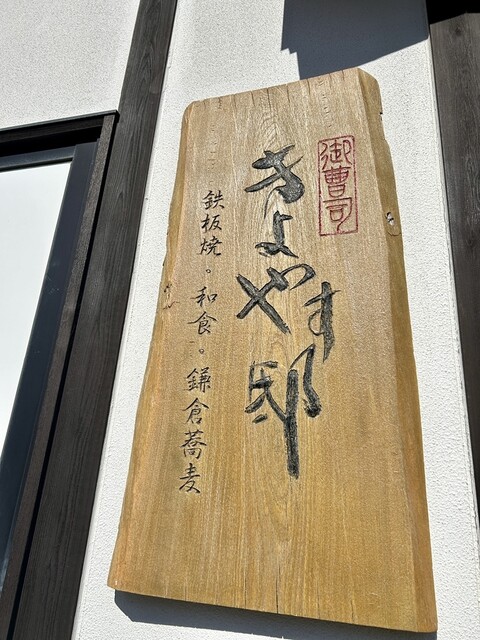 御曹司
きよやす邸
鉄板焼。和食。鎌倉蕎麦